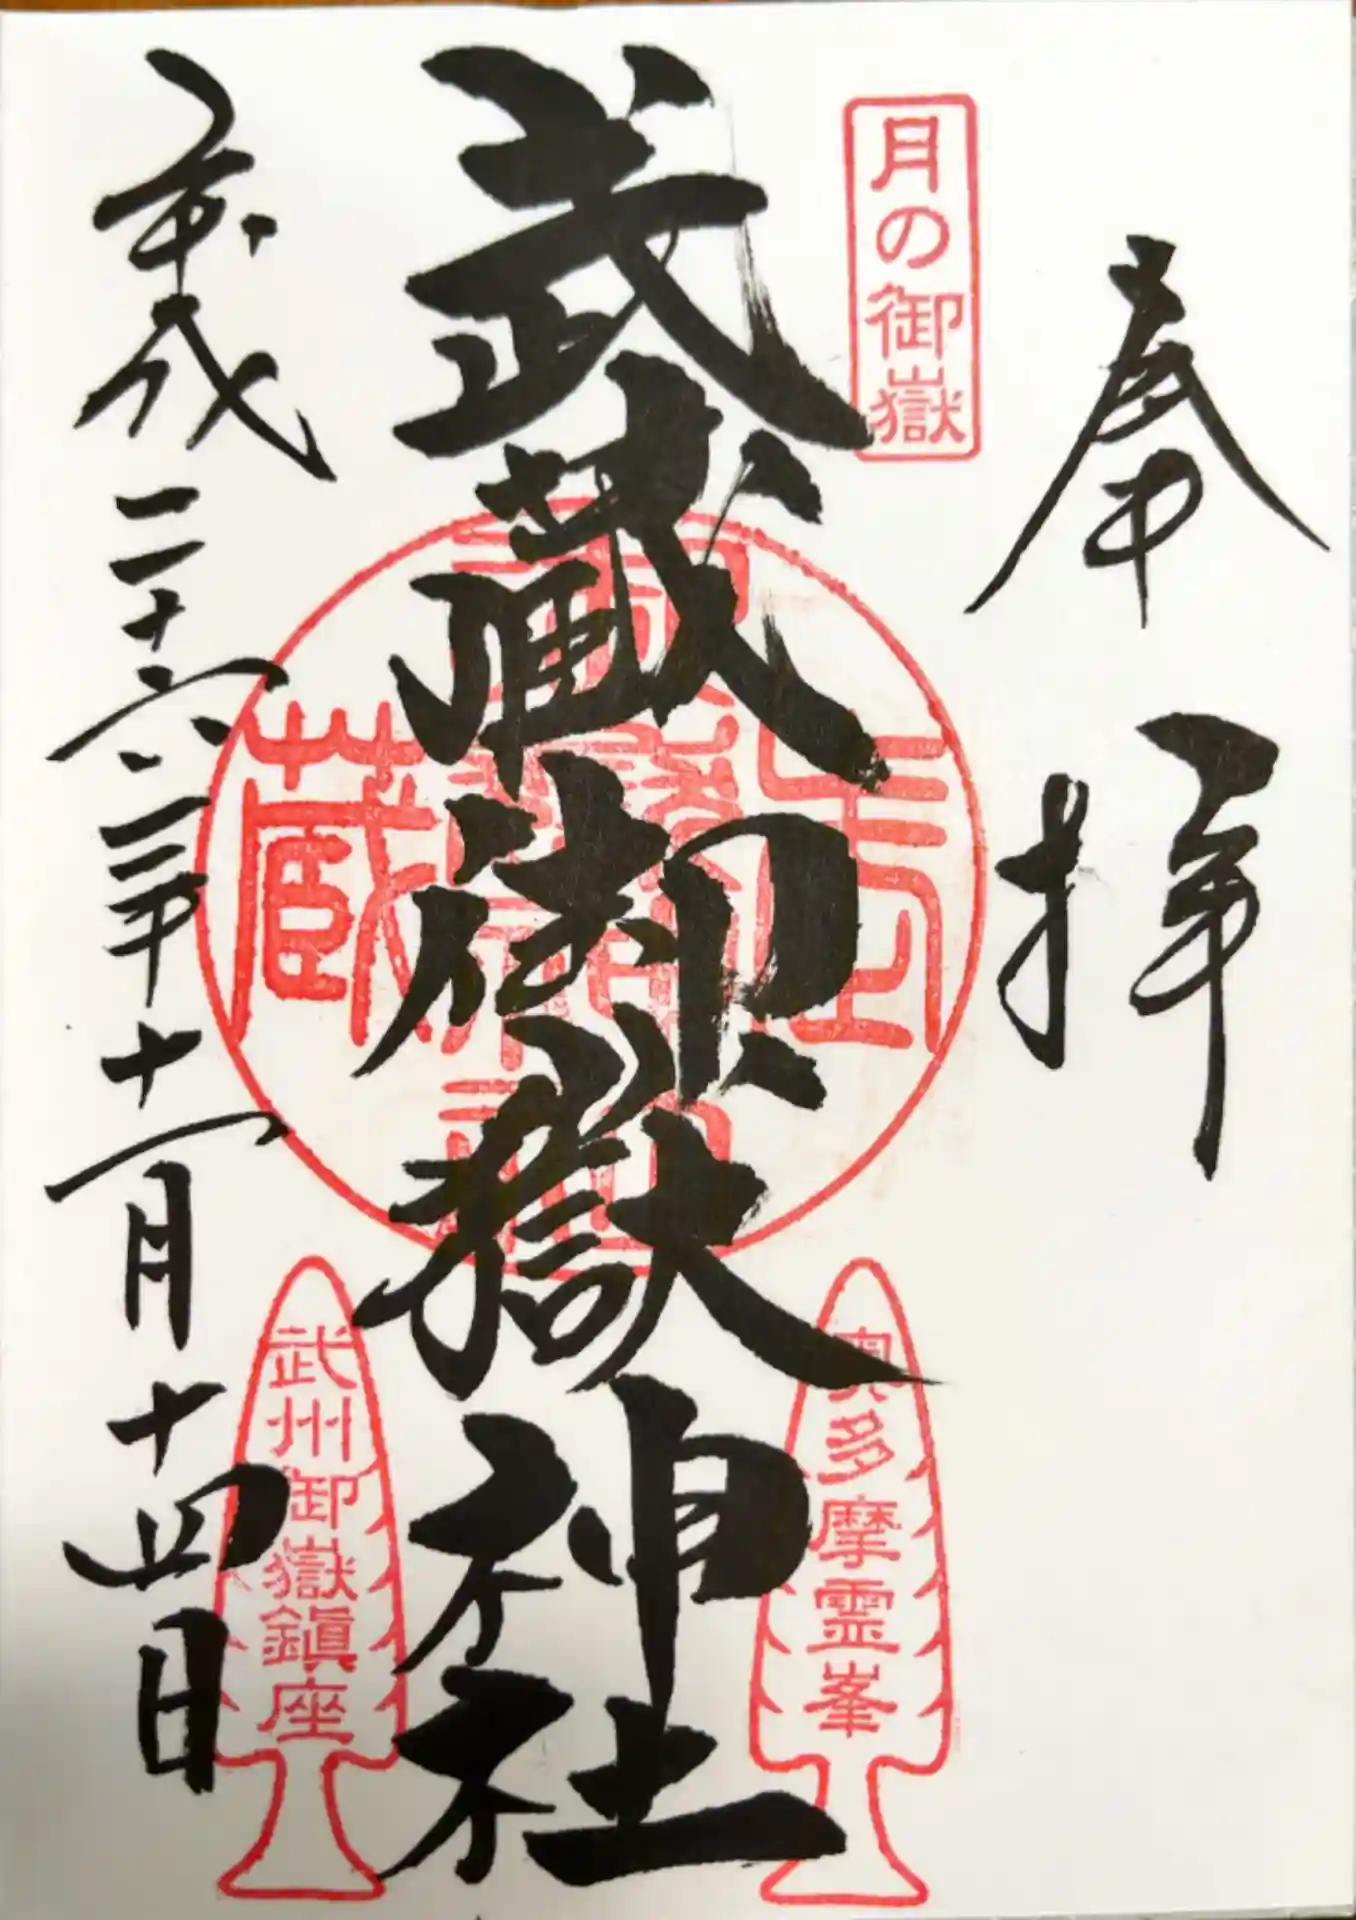 奉拝
月の御嶽
武蔵御嶽神社
奥多摩霊峯
武州御嶽鎮座
平成二十六年十一月十四日